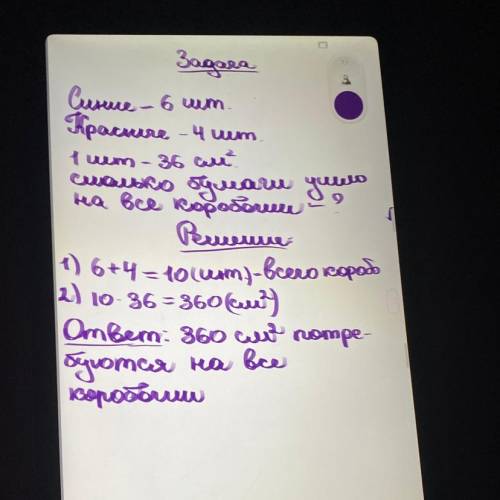 Задача
Синие – 6 шт.
Красные – 4 шт.
1 шт – 36 см²
сколько бумаги ушло
на все коробочки – ?
Решение:
1) 6+4=10(шт)-всего короб
2) 10·36=360(см²)
Ответ: 360 см² потре-
буются на все
коробочки